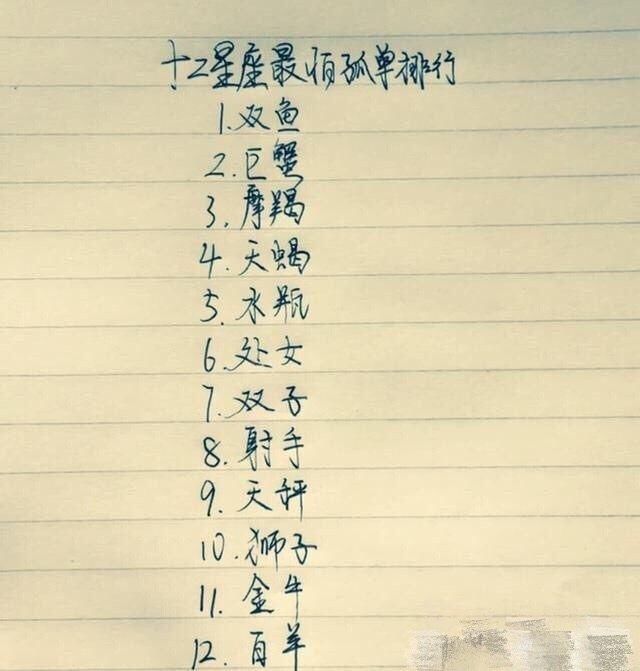 十二星座最怕孤单排行
1.双鱼
2.巨蟹
3.摩羯
4.天蝎
5.水瓶
6.处女
7.双子
8.射手
9.天秤
10.狮子
11.金牛
12.百羊